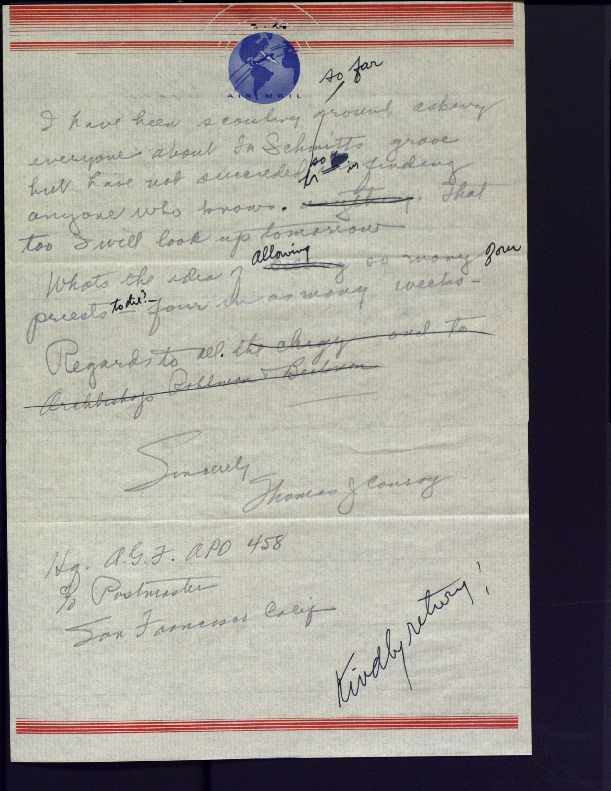 AIR MAIL
so far
I have been scouting ground, asking
everyone about Lt Schmitts grave
but have not succeeded so far in finding
anyone who knows. anything. That
too I will look up tomorrow
Whats the idea of allowing so many your
priests to die?- four in as many weeks-
Regards to all. the clergy and to
Archbishops Rohlman & Beckman
Sincerely
Thomas J Conroy
Hq. A.G.F. APO 458
c/o Postmaster
San Francisco Calif
Kindly return!